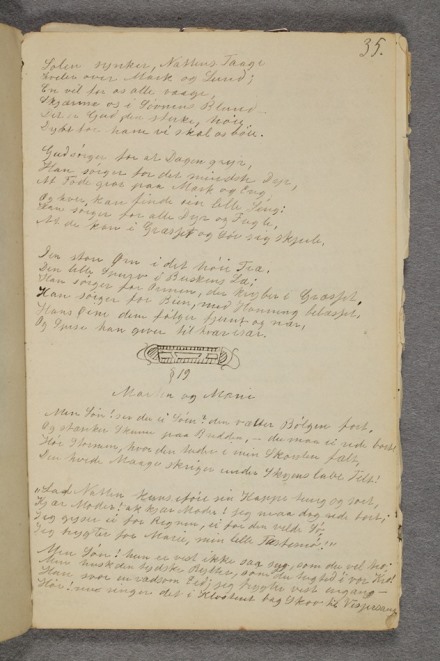 35.
Solen synker, Nattens Taage
over Mark og Lund;
En vil for os alle vaage,
Skjærme os i Søvnens Blund.
Det er Gud den stærke, høie
have vi skal os bøie.
Gud sørger for at Dagen gryr,
Han sørger for det mindste Dyr,
At Føde gror paa Mark og Eng
Og hver kan finde sin lille Seng;
Han sørger for alle Dyr og Fugle,
At de kan i Græsset og Løv sig skjule.
Den store Ørn i det høie Træ,
Den lille Spurv i Buskens Læ;
Han sørger for Ormen, der kryber i Græsset,
Han sørger for Bien, med Honning belæsset,
Hans Øine dem følger fjernt og nær,
Og Spise han giver til hver især.
§ 19
og Marie
Men Søn! ser du ei Søen? den vælter Bølgen bort,
Og stænker Skum paa Bredden, – du maa ei ride bort
Hør Stormen, hvor den tuder i min Skorsten fælt,
Den hvide Maage skriger under Skyens lave Telt!
"Lad Natten kun sin Kappe tung og sort,
Kjær Moder! ak kjær Moder! jeg maa dog ride bort;
Jeg gyser ei for Regnen, ei for den vilde Sø,
Jeg frygter for Marie, min lille Fæstemø!"
Men Søn! hun er vist ikke saa syg, som du vel tro
Men husk den tydske Rytter, som du i vor
Han svor en Eed; jeg frygter vist engang –
Hør! nu ringer det i Klostret bag Skov til Vespersang